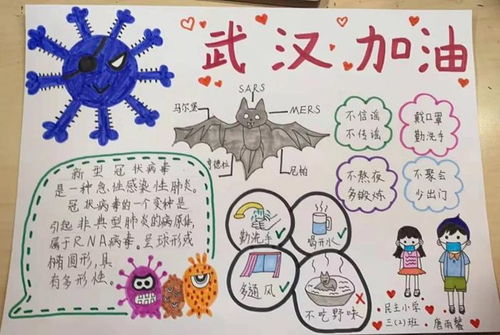 武汉加油
SARS
马尔堡
MERS
亨德拉
尼帕
不信谣
不传谣
戴口罩
勤洗手
不熬夜
多锻炼
不聚会
少出门
新型冠状病毒
是一种急性感染性肺炎。
冠状病毒的一个变种是
引起非典型肺炎的病原体,
属于RNA病毒。呈球形或
椭圆形,具
有多形性。
勤洗手
喝开水
多通风
不吃野味
民主小学
三(2)班
唐雨馨